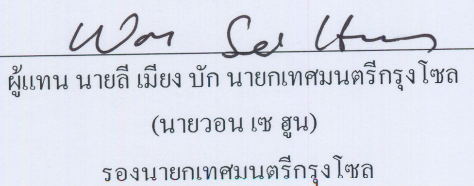 Won Sei Hun
ผู้แทน นายลี เมียง บัก นายกเทศมนตรีกรุงโซล
(นายวอน เซ ฮูน)
รองนายกเทศมนตรีกรุงโซล